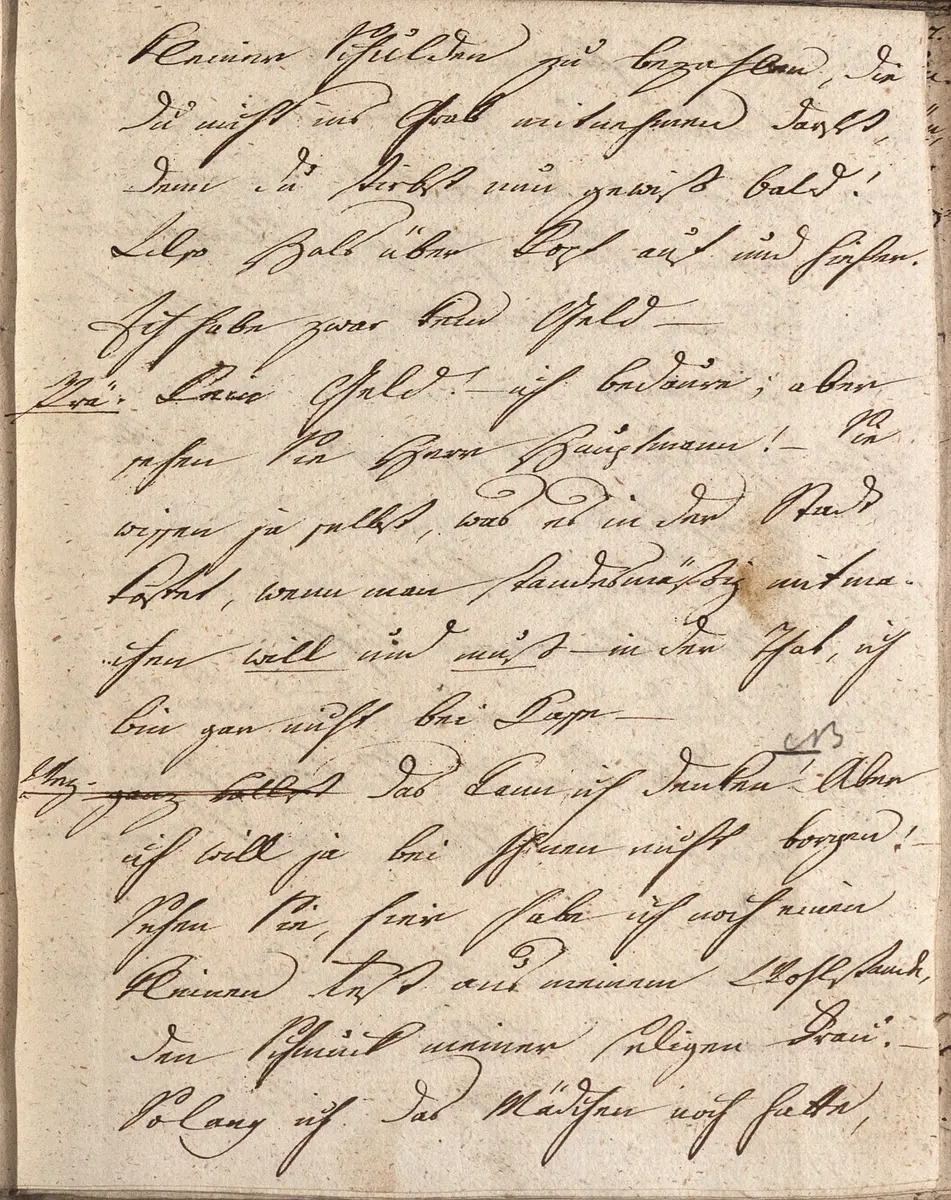 kleiner Schulden zu bezahlen, die
du nicht ins Grab mitnehmen darfst,
denn du stirbst nun gewiß bald!
Also Hals über Kopf auf und hieher.
Ich habe zwar kein Geld —
Prä: Kein Geld! — ich bedaure; aber
sehen Sie Herr Hauptmann! — Sie
wissen ja selbst, was es in der Stadt
kostet, wenn man standesmäßig mitma-
chen will und muß — in der That, ich
bin gar nicht bei Casse —
NB
ganz selbst das kann ich denken! Aber
ich will ja bei Ihnen nicht borgen! —
Sehen Sie, hier habe ich noch einen
kleinen Rest aus meinem Wohlstande,
den Schmuck meiner seligen Frau. —
So lang ich das Mädchen noch hatte,